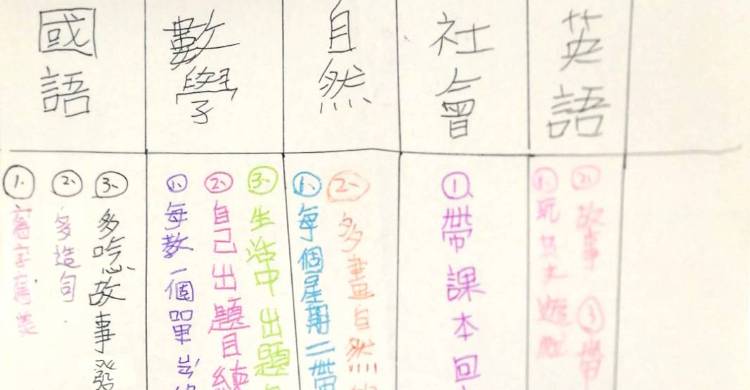 國語
數學
自然
社會
英語
1. 寫字寫
2. 多造句
3. 多唸故事發
1. 每教一個單
2. 自己出題目練
3. 生活中出題
1. 每個星期二帶
2. 多畫自然
1. 帶課本回
1. 玩英文遊
2. 故事
3. 帶